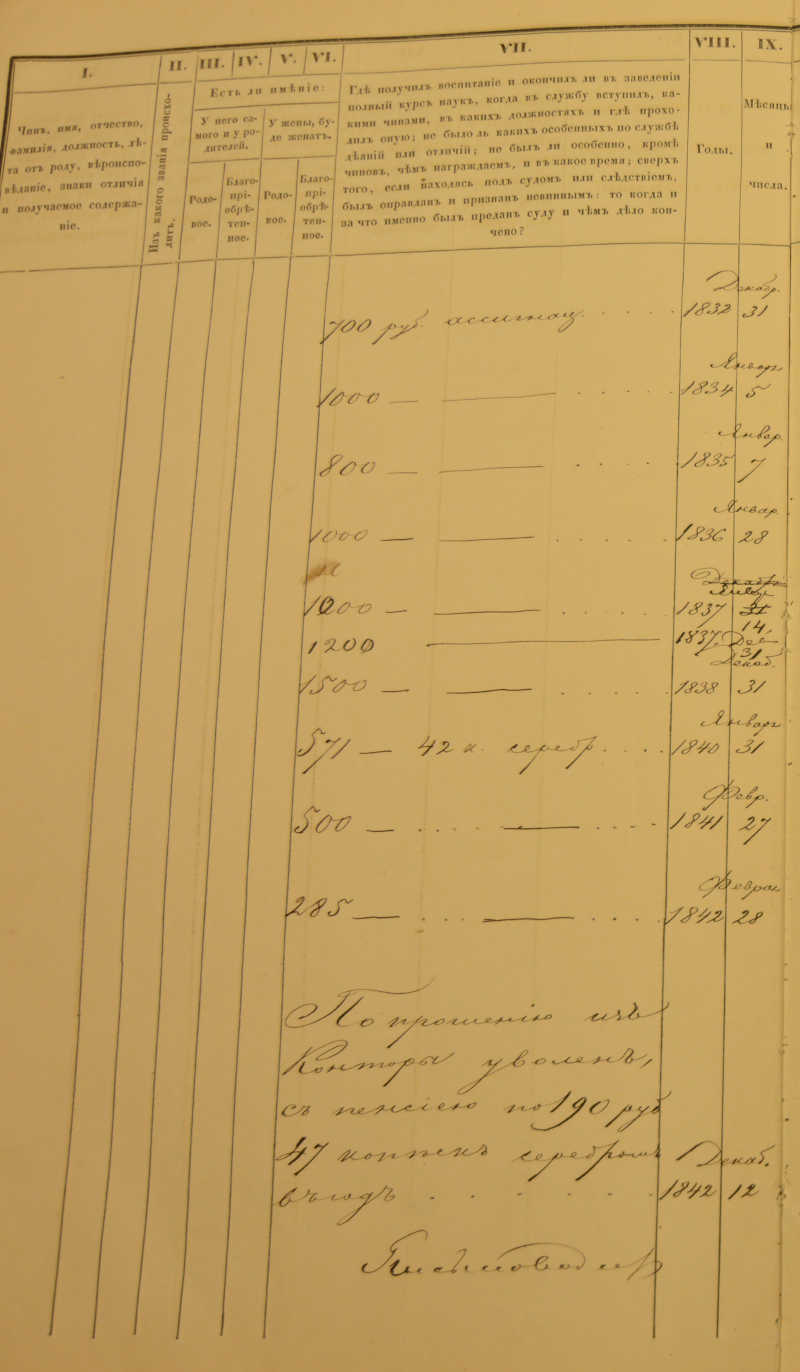 I. II. III. IV. V. VI. VII. VIII. IX.
Чинъ, имя, отчество,
фамилія, должность, лѣ-
та отъ роду, вѣроиспо-
вѣданіе, знаки отличія
и получаемое содержа-
ніе.
Изъ какого званія происхо-
дитъ.
Есть ли имѣніе:
У него са-
мого и у ро-
дителей.
У жены, бу-
де женатъ.
Родо-
вое.
Благо-
прі-
обрѣ-
тен-
ное.
Родо-
вое.
Благо-
прі-
обрѣ-
тен-
ное.
Гдѣ получилъ воспитаніе и окончилъ ли въ заведеніи
полный курсъ наукъ, когда въ службу вступилъ, ка-
кими чинами, въ какихъ должностяхъ и гдѣ прохо-
дилъ оную; не было ль какихъ особенныхъ по службѣ
дѣяній или отличій; не былъ ли особенно, кромѣ
чиновъ, чѣмъ награждаемъ, и въ какое время; сверхъ
того, если находясь подъ судомъ или слѣдствіемъ,
былъ оправданъ и признанъ невиннымъ: то когда и
за что именно былъ преданъ суду и чѣмъ дѣло кон-
чено?
Годы.
Мѣсяцы
и
числа.
Декабр.
700 руб. ассигнац. . . . . 1832 31
Январ.
1000 — — . . . . 1834 5
Январ.
800 — — . . . 1835 7
Январ.
1000 — — . . . . . 1836 28
Декабр.
Январ.
1000 — — . . . . 1837 31
14.
1200 — 1837. Дек.
31
Декаб.
1500 — — . . . . . 1838 31
Январ.
571 — 42 к. серебр. . . . . 1840 31
Февр.
500 — . . . . — . . . . 1841 27
Феврал.
285 — . . . — . . . . 1842 28
По прошенію изъ
Конторы уволенъ,
съ пенсіею по 190 руб
47 копѣекъ серебромъ Декаб.
въ годъ . . . . . . 1842 12